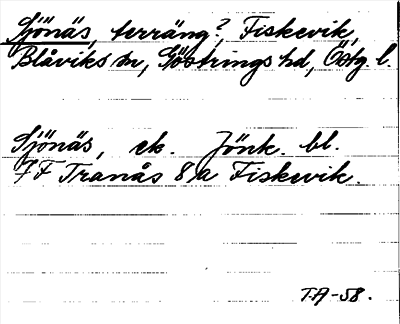 Sjönäs, terräng?, Fiskevik,
Blåviks sn, Göstrings hd, Östg. l.
Sjönäs, ek. Jönk. bl.
7F Tranås 8a Fiskevik.
T.A-58.